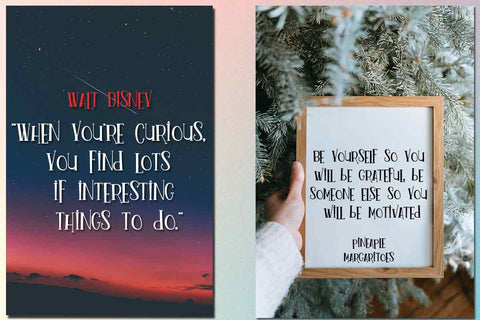 WALT DISNEY
"WHEN YOU'RE CURIOUS,
YOU FIND LOTS
IF INTERESTING
THINGS TO DO."
BE YOURSELF SO YOU
WILL BE GRATEFUL, BE
SOMEONE ELSE SO YOU
WILL BE MOTIVATED
PINEAPLE
MARGARITOES